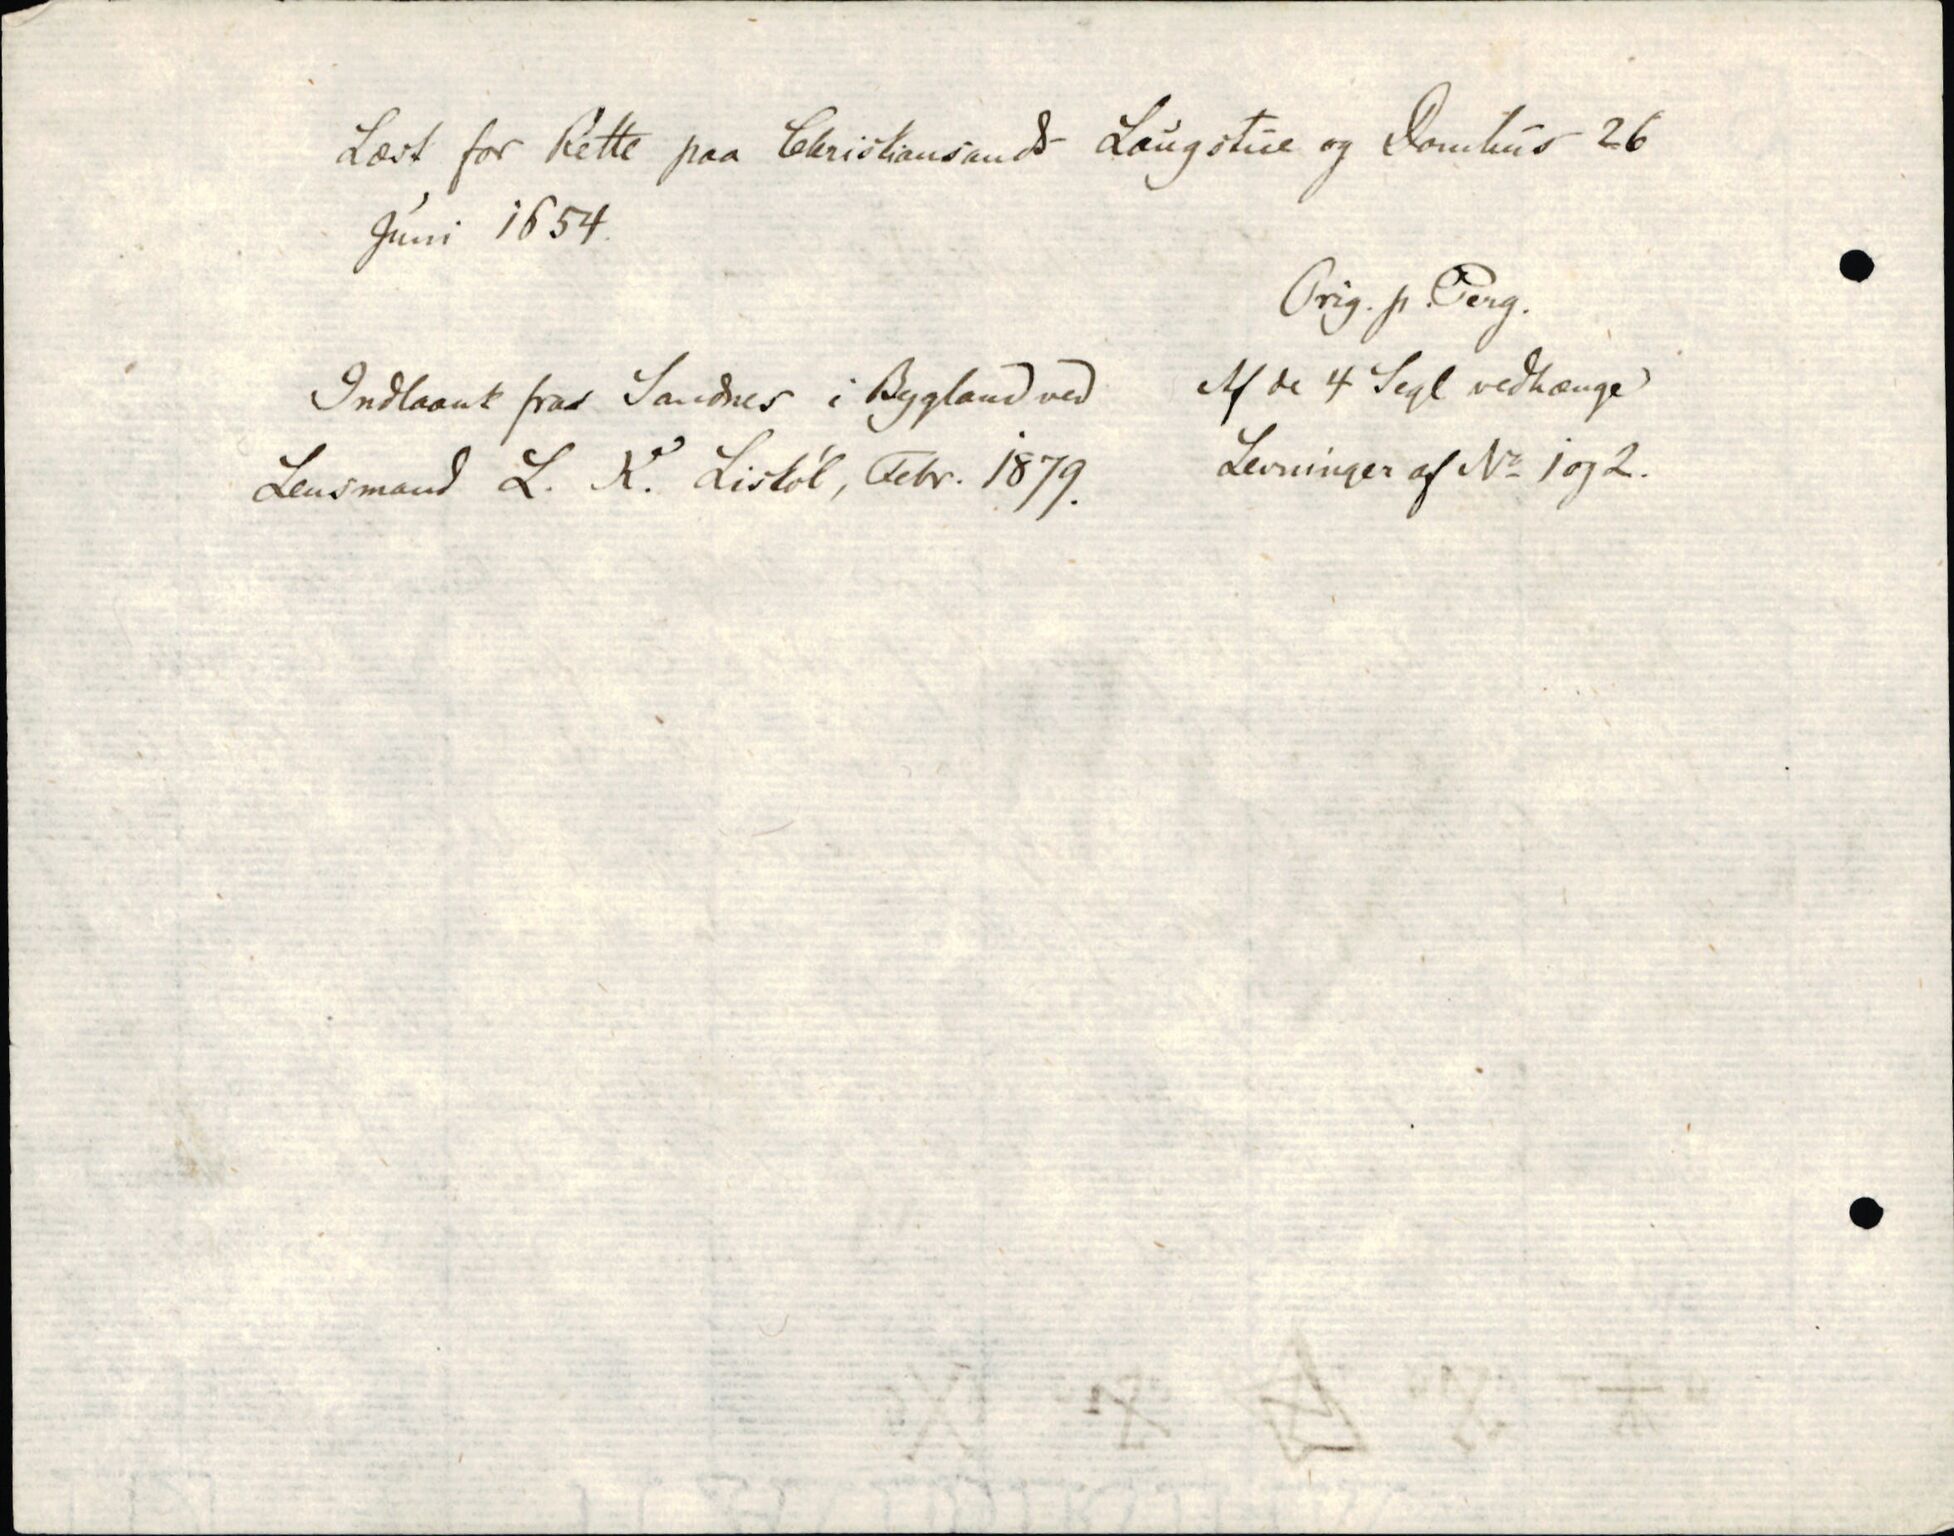 Læst for Rette paa Christiansands Laugstue og Domhus 26
Juni 1654.
Orig. p. Perg.
Indlaant fra Sandnes i Bygland ved
Lensmand L. K. Liskøl, Febr. 1879.
Af de 4 Segl vedhænge
Levninger af No 1 og 2.